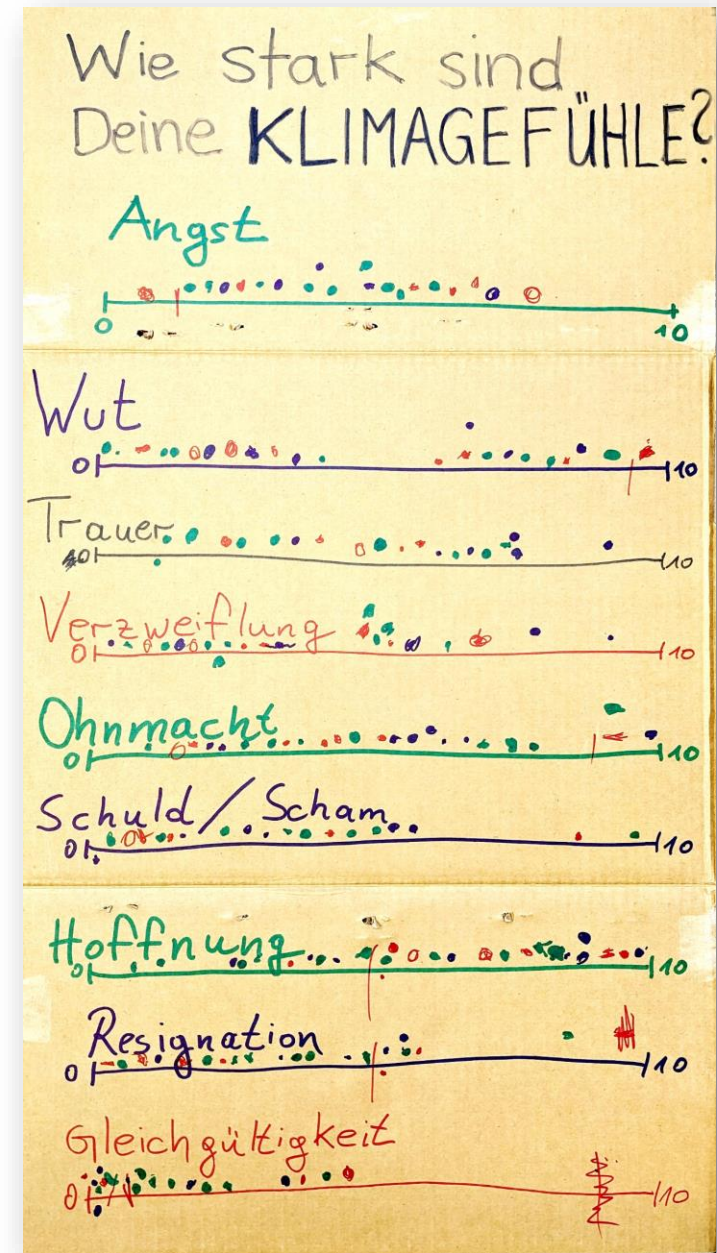 Wie stark sind
Deine KLIMAGEFÜHLE?
Angst
0 10
Wut
0 10
Trauer
0 10
Verzweiflung
0 10
Ohnmacht
0 10
Schuld / Scham
0 10
Hoffnung
0 10
Resignation
0 10
Gleichgültigkeit
0 10